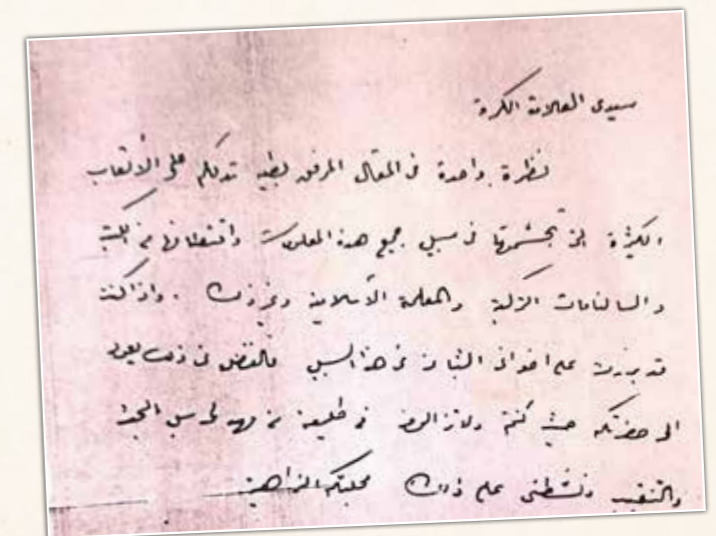 سيدي العلامة الكرة
نظرة واحدة في المقال المرفق بطيه تدلكم على الأتعاب
الكثيرة التي تجشمتها في سبيل جمع هذه المعلومات واقتطافها من الكتب
والسالنامات التركية والمعلمة الأسلامية وغير ذلك . واذا كنت
قد برزت على اخواني الشبان في هذا السبيل فالفضل في ذلك يعود
الى حضرتكم حيث كنتم في طليعة من مهد لي سبل البحث
والتنقيب ونشطني على ذلك مجلتكم الزاهية